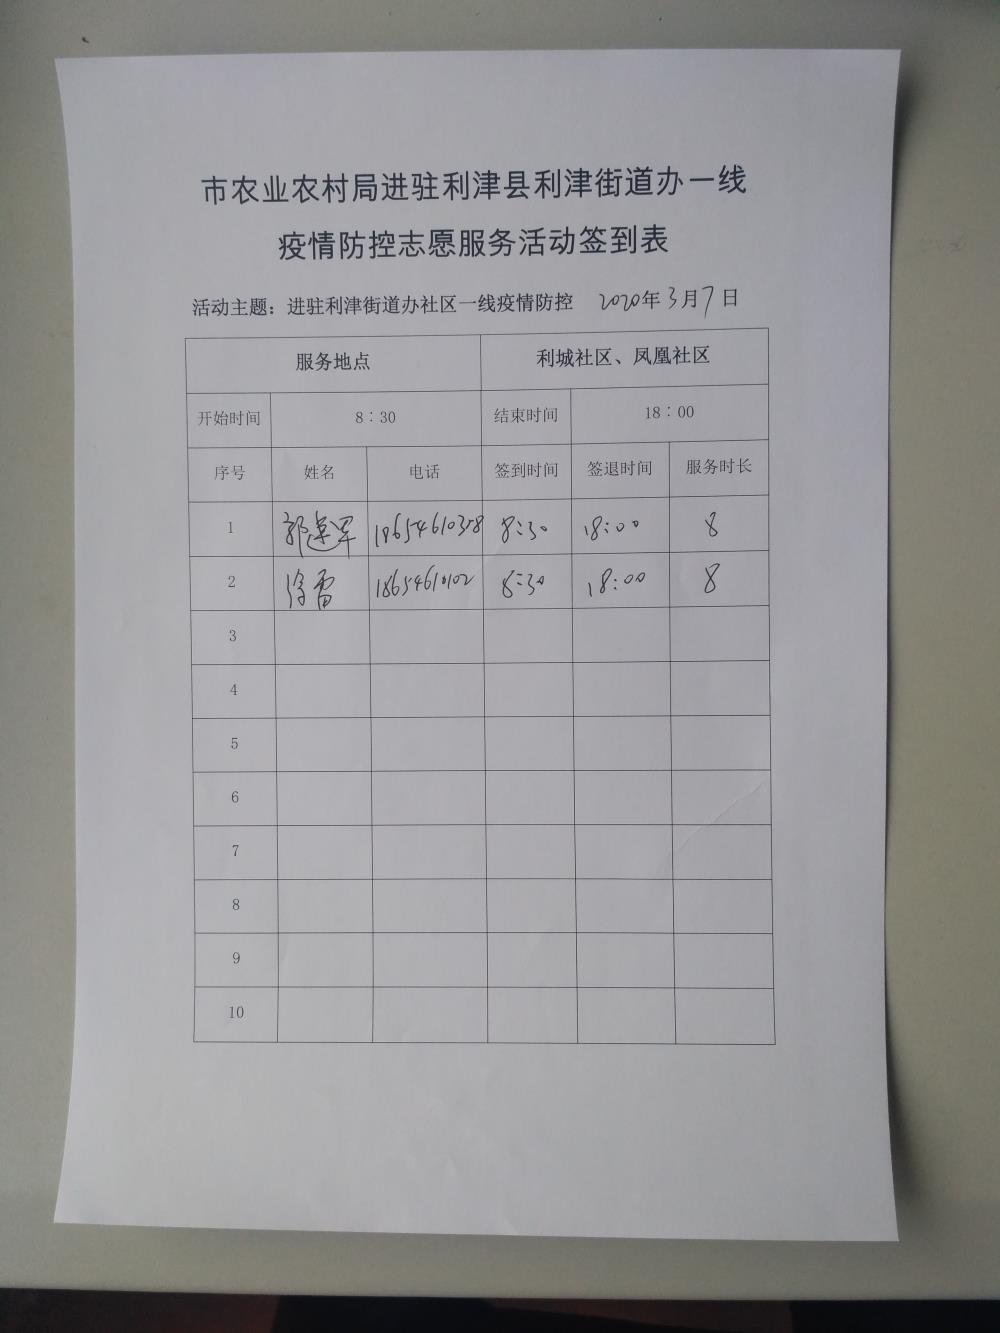 市农业农村局进驻利津县利津街道办一线
疫情防控志愿服务活动签到表
活动主题：进驻利津街道办社区一线疫情防控 2020年3月7日
服务地点 利城社区、凤凰社区
开始时间 8：30 结束时间 18：00
序号 姓名 电话 签到时间 签退时间 服务时长
1 郭建军 18654610358 8:30 18:00 8
2 徐雷 18654610102 8:30 18:00 8
3
4
5
6
7
8
9
10